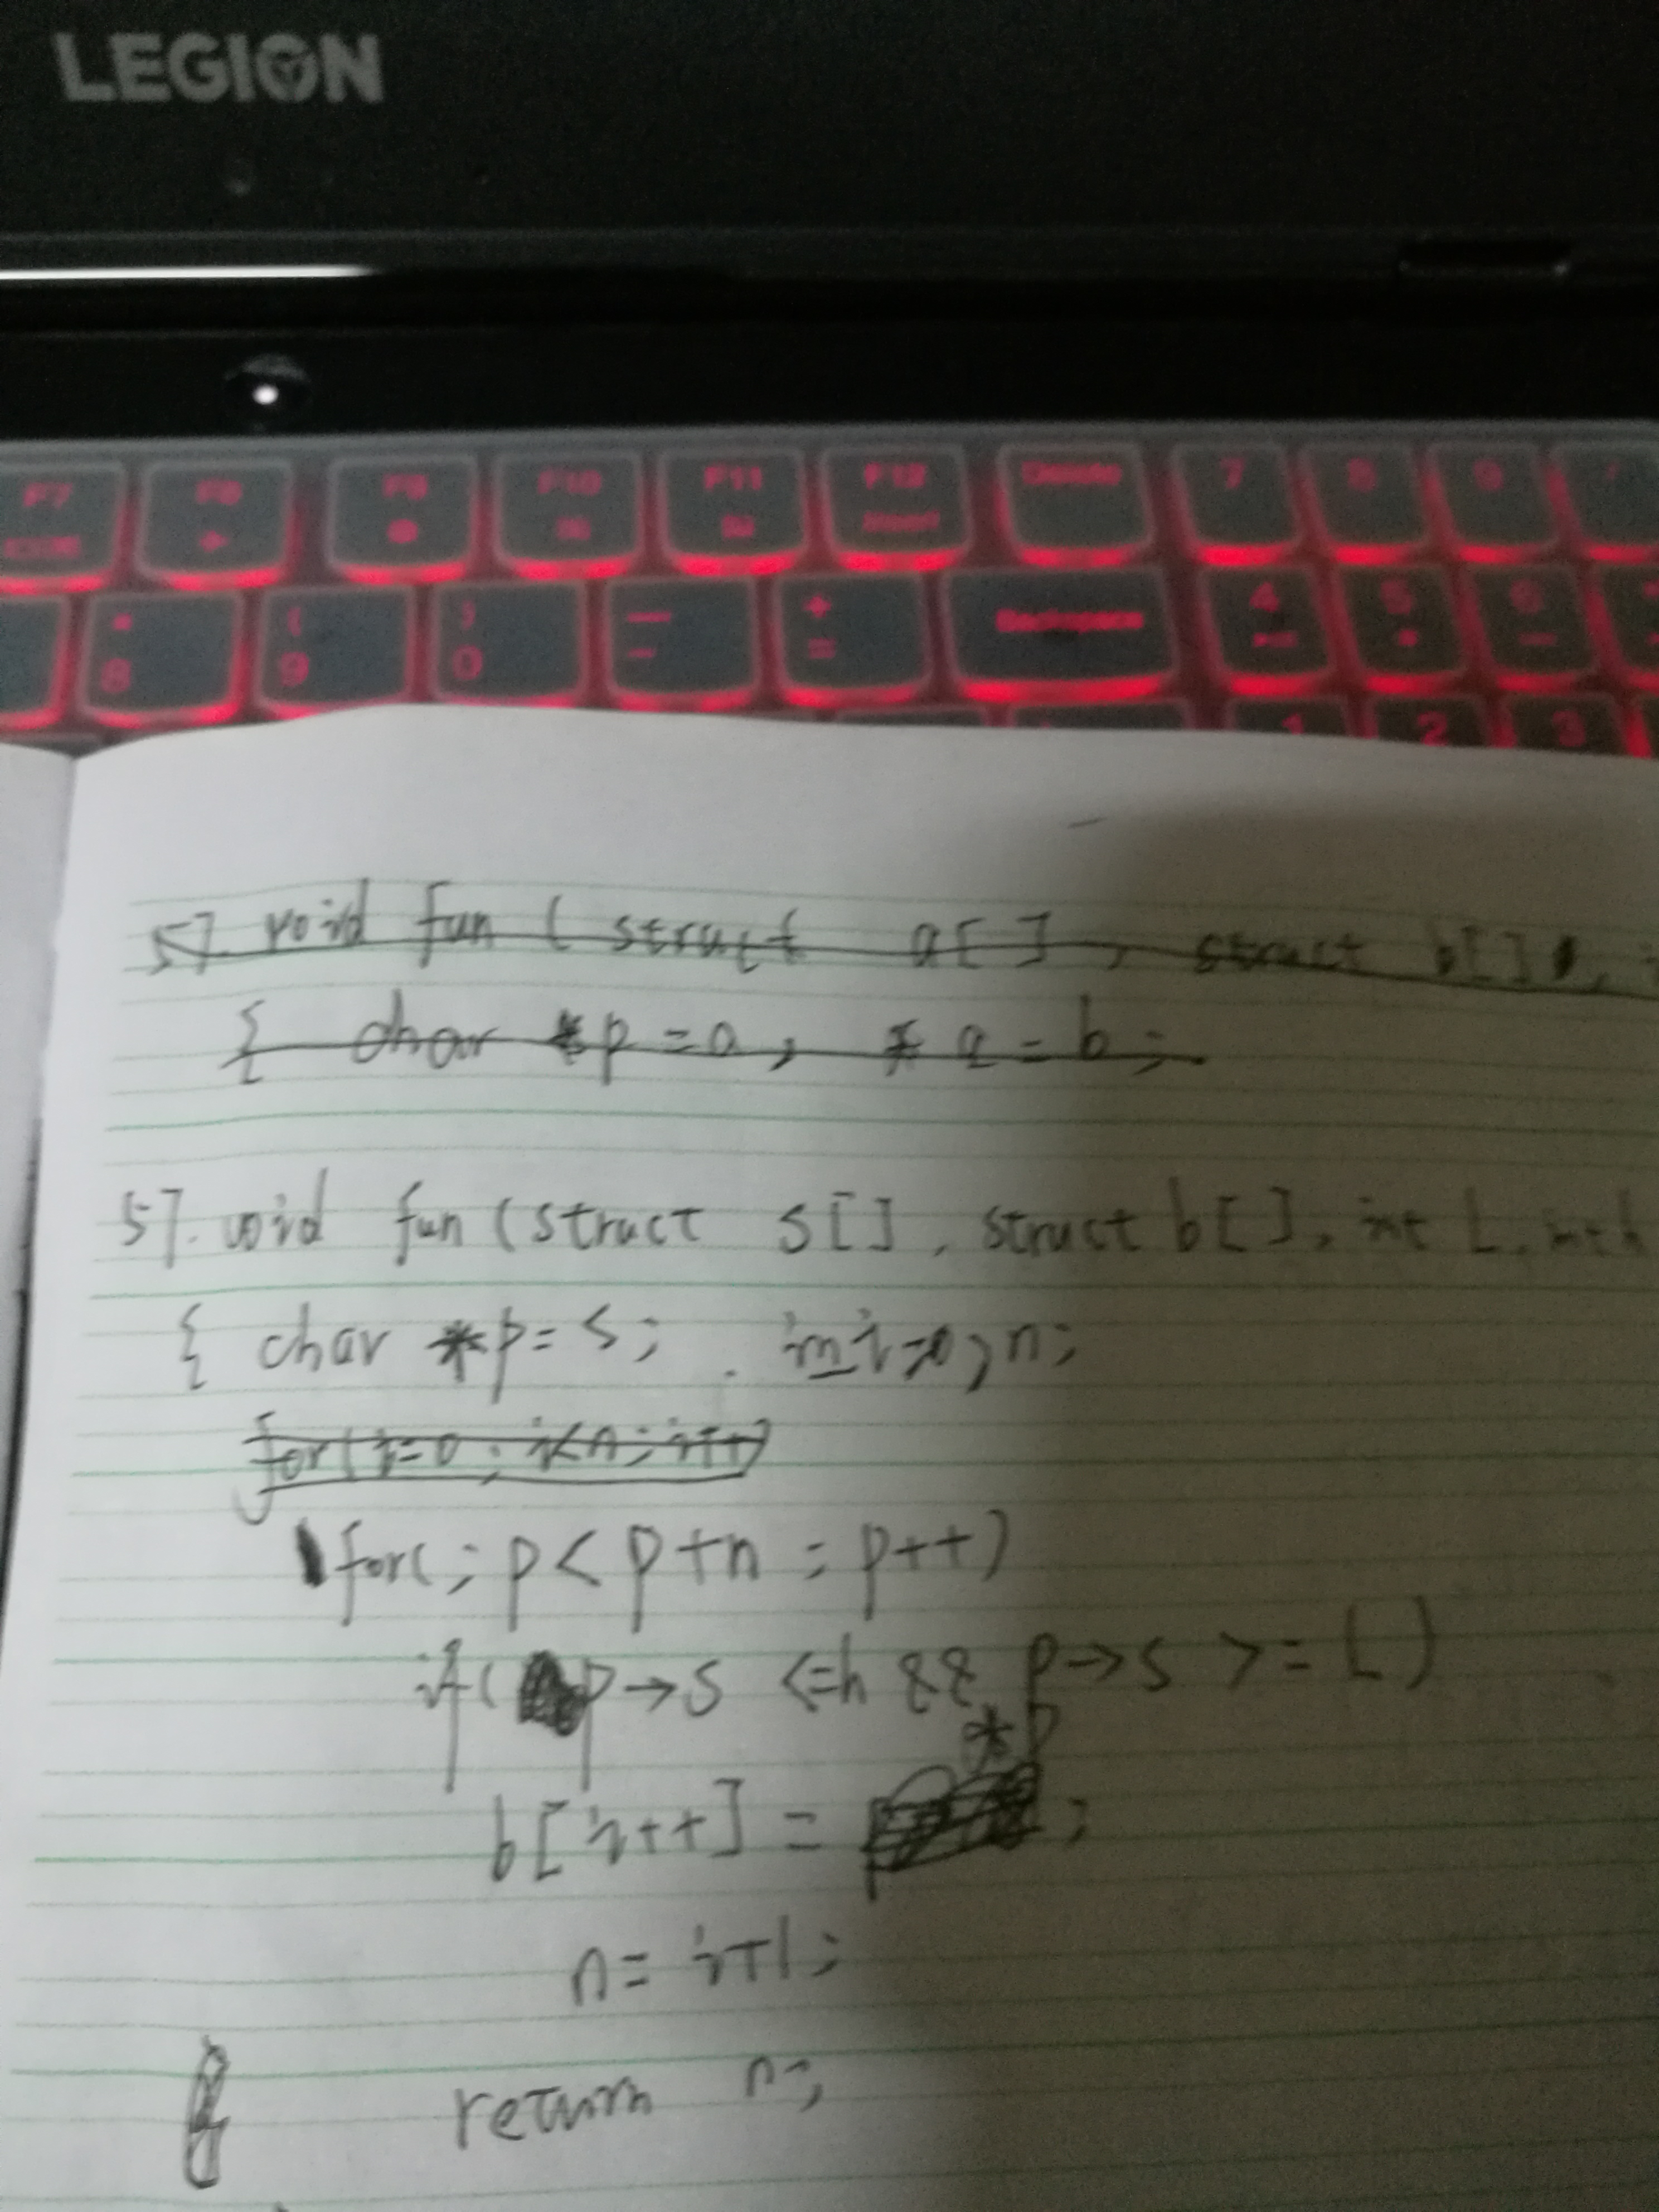 LEGION
F7 F8 F9 F10 F11 F12 Delete 7 8 9
Insert
8 ( 9 ) 0 — - + = Backspace 4 5 6
1 2 3
57. void fun ( struct a[] , struct b[] ,
{ char *p = a , * q = b ;
57. void fun (struct s[] , struct b[] , int L , int h
{ char *p = s ; int i=0 , n ;
for(i=0 ; i<n ; i++)
for( ; p < p+n ; p++)
if( p→s <=h && p→s >= L )
*p
b[i++] = ;
n = i+1 ;
return n ;